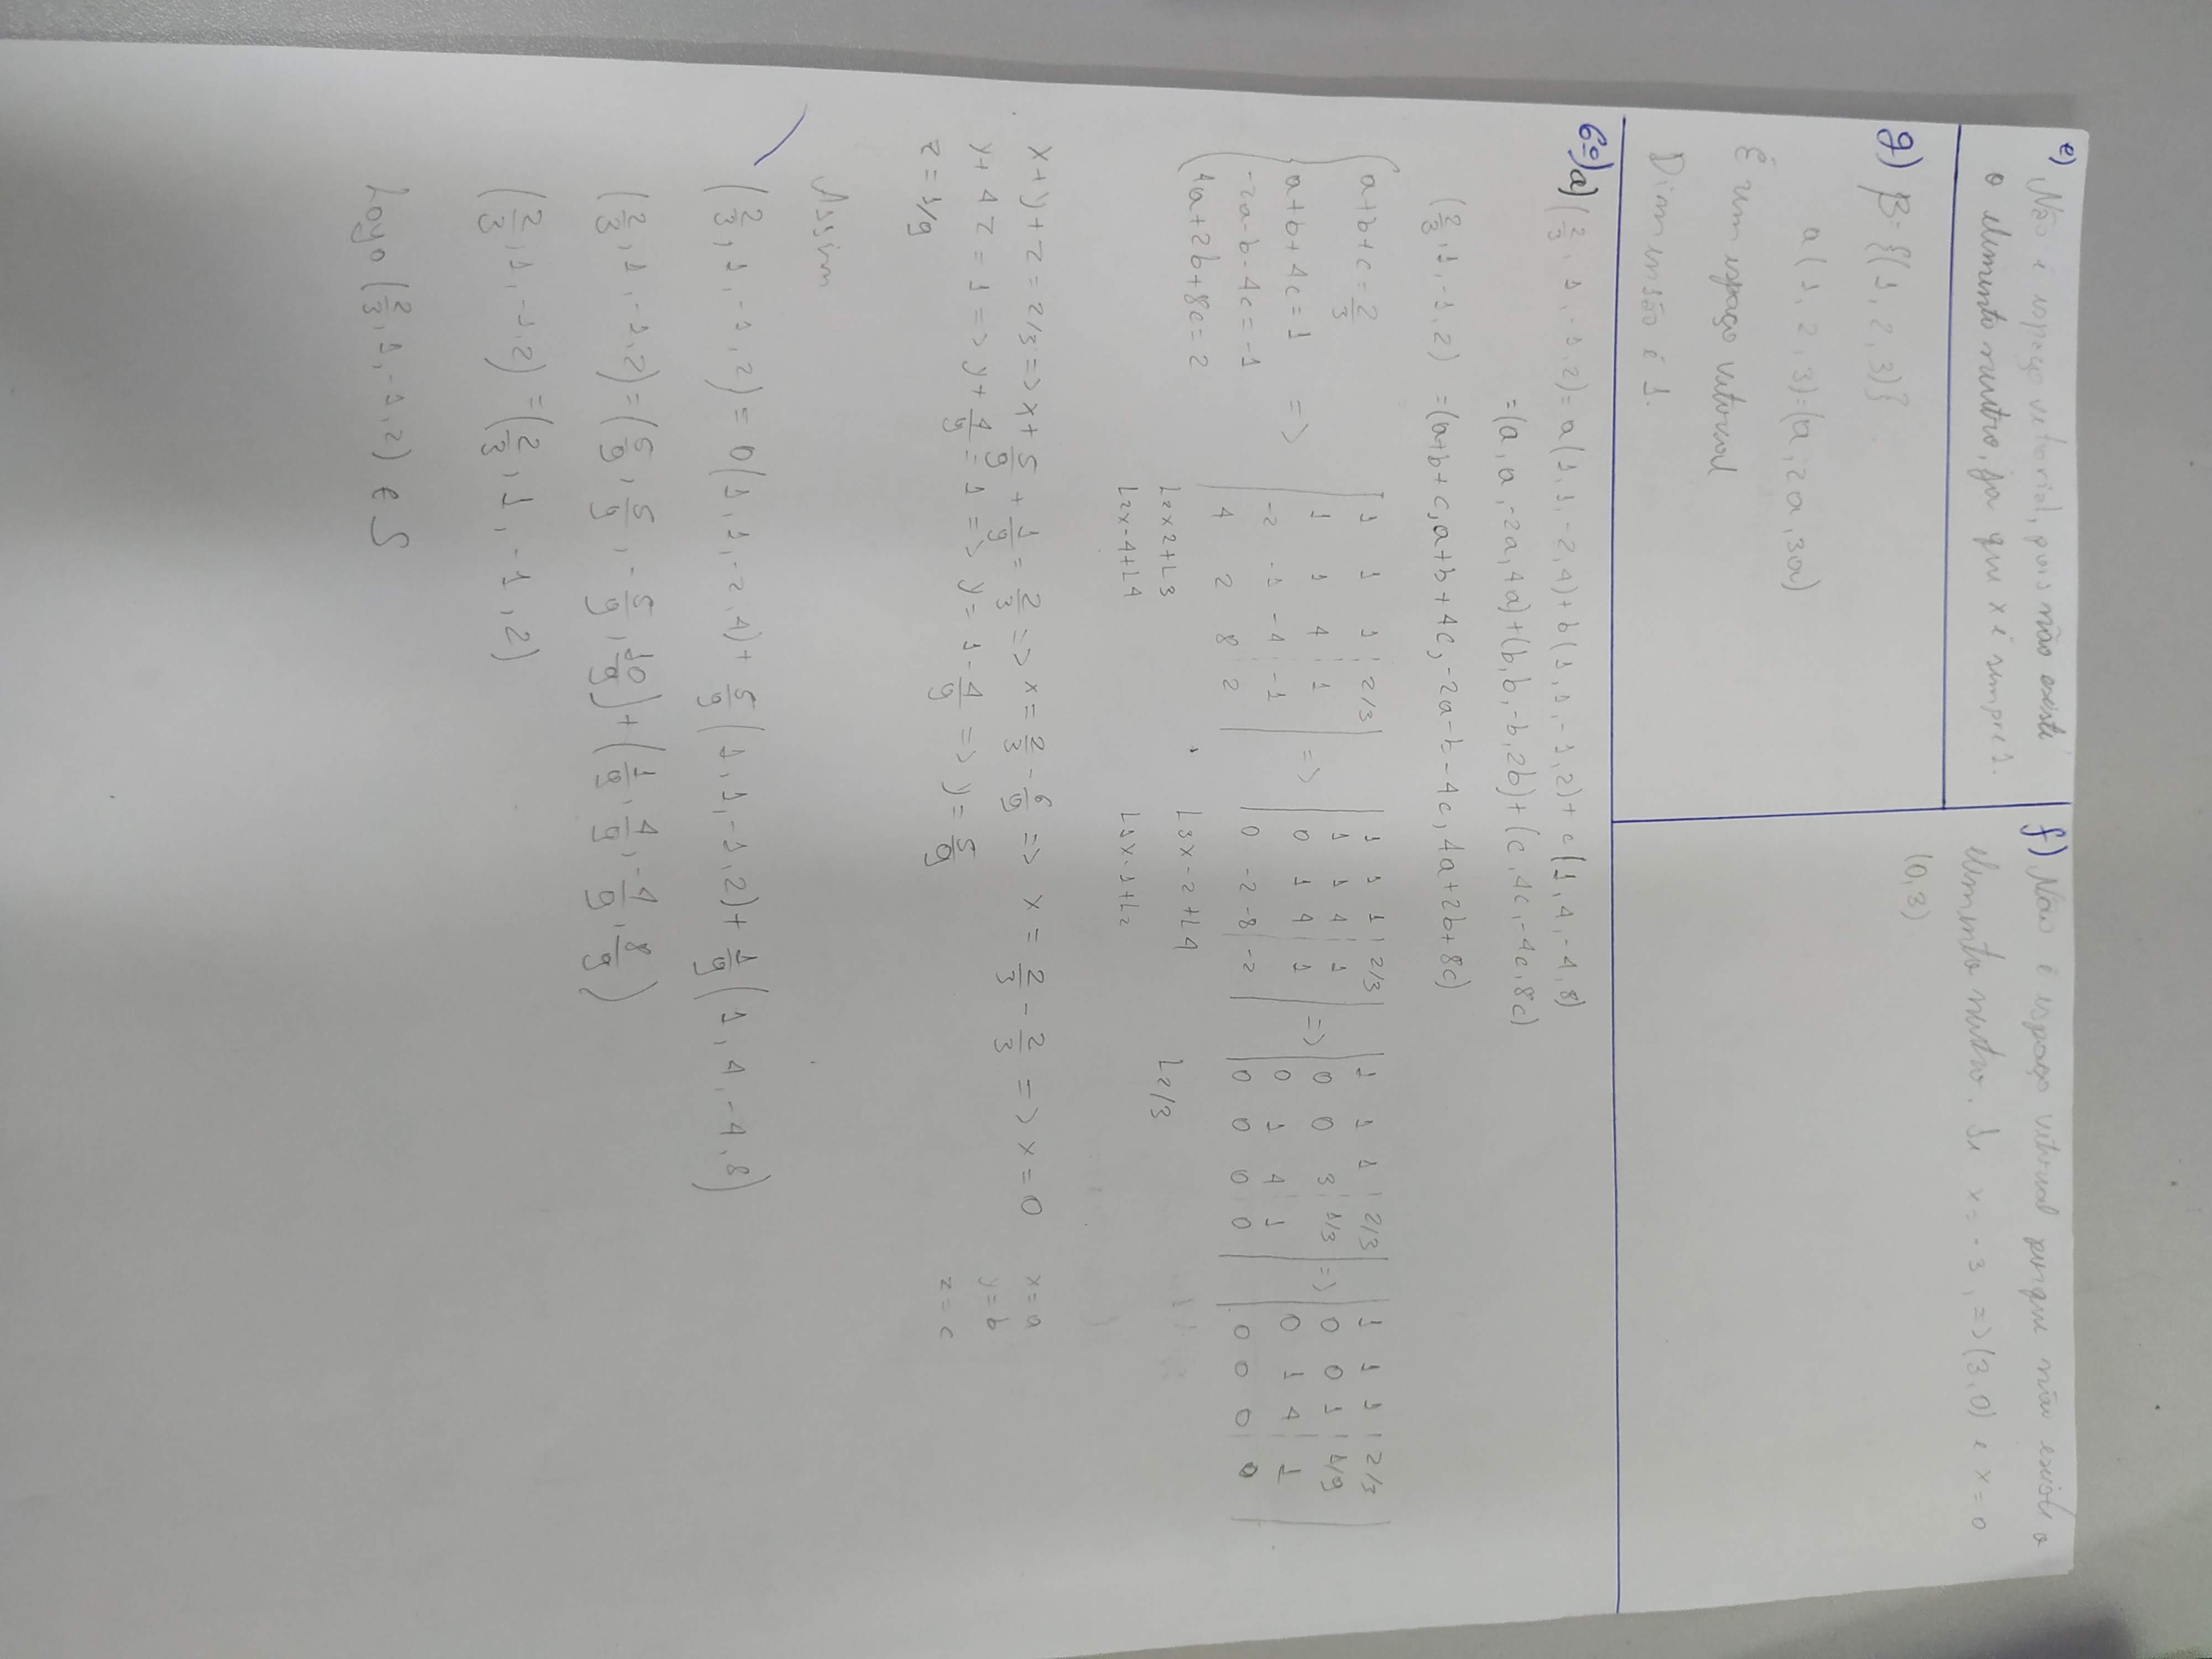 e) Não é espaço vetorial, pois não existe
o elemento neutro, ja que x é sempre 1.
f) Não é espaço vetorial porque não existe o
elemento neutro. Se x = -3, => (3,0) e x = 0
(0,3)
g) β = {(1,2,3)}
a(1,2,3) = (a, 2a, 3a)
É um espaço vetorial
Dimensão é 1.
6º) a) (2/3, 1, -1, 2) = a(1,1,-2,4) + b(1,1,-1,2) + c(1,4,-4,8)
= (a, a, -2a, 4a) + (b, b, -b, 2b) + (c, 4c, -4c, 8c)
(2/3, 1, -1, 2) = (a+b+c, a+b+4c, -2a-b-4c, 4a+2b+8c)
{ a+b+c = 2/3 | 1 1 1 | 2/3 | | 1 1 1 | 2/3 | | 1 1 1 | 2/3 | | 1 1 1 | 2/3 |
a+b+4c = 1 => | 1 1 4 | 1 | => | 1 1 4 | 1 | => | 0 0 3 | 1/3 | => | 0 0 1 | 1/9 |
-2a-b-4c = -1 | -2 -1 -4 | -1 | | 0 1 4 | 1 | | 0 1 4 | 1 | | 0 1 4 | 1 |
4a+2b+8c = 2 | 4 2 8 | 2 | | 0 -2 -8 | -2 | | 0 0 0 | 0 | | 0 0 0 | 0 |
L2x2+L3 L3x-2+L4 L2/3
L2x-4+L4 L1x-1+L2
x+y+z = 2/3 => x + 5/9 + 1/9 = 2/3 => x = 2/3 - 6/9 => x = 2/3 - 2/3 => x = 0 x = a
y+4z = 1 => y + 4/9 = 1 => y = 1 - 4/9 => y = 5/9 y = b
z = 1/9 z = c
Assim
(2/3, 1, -1, 2) = 0(1,1,-2,4) + 5/9 (1,1,-1,2) + 1/9 (1,4,-4,8)
(2/3, 1, -1, 2) = (5/9, 5/9, -5/9, 10/9) + (1/9, 4/9, -4/9, 8/9)
(2/3, 1, -1, 2) = (2/3, 1, -1, 2)
Logo (2/3, 1, -1, 2) e S